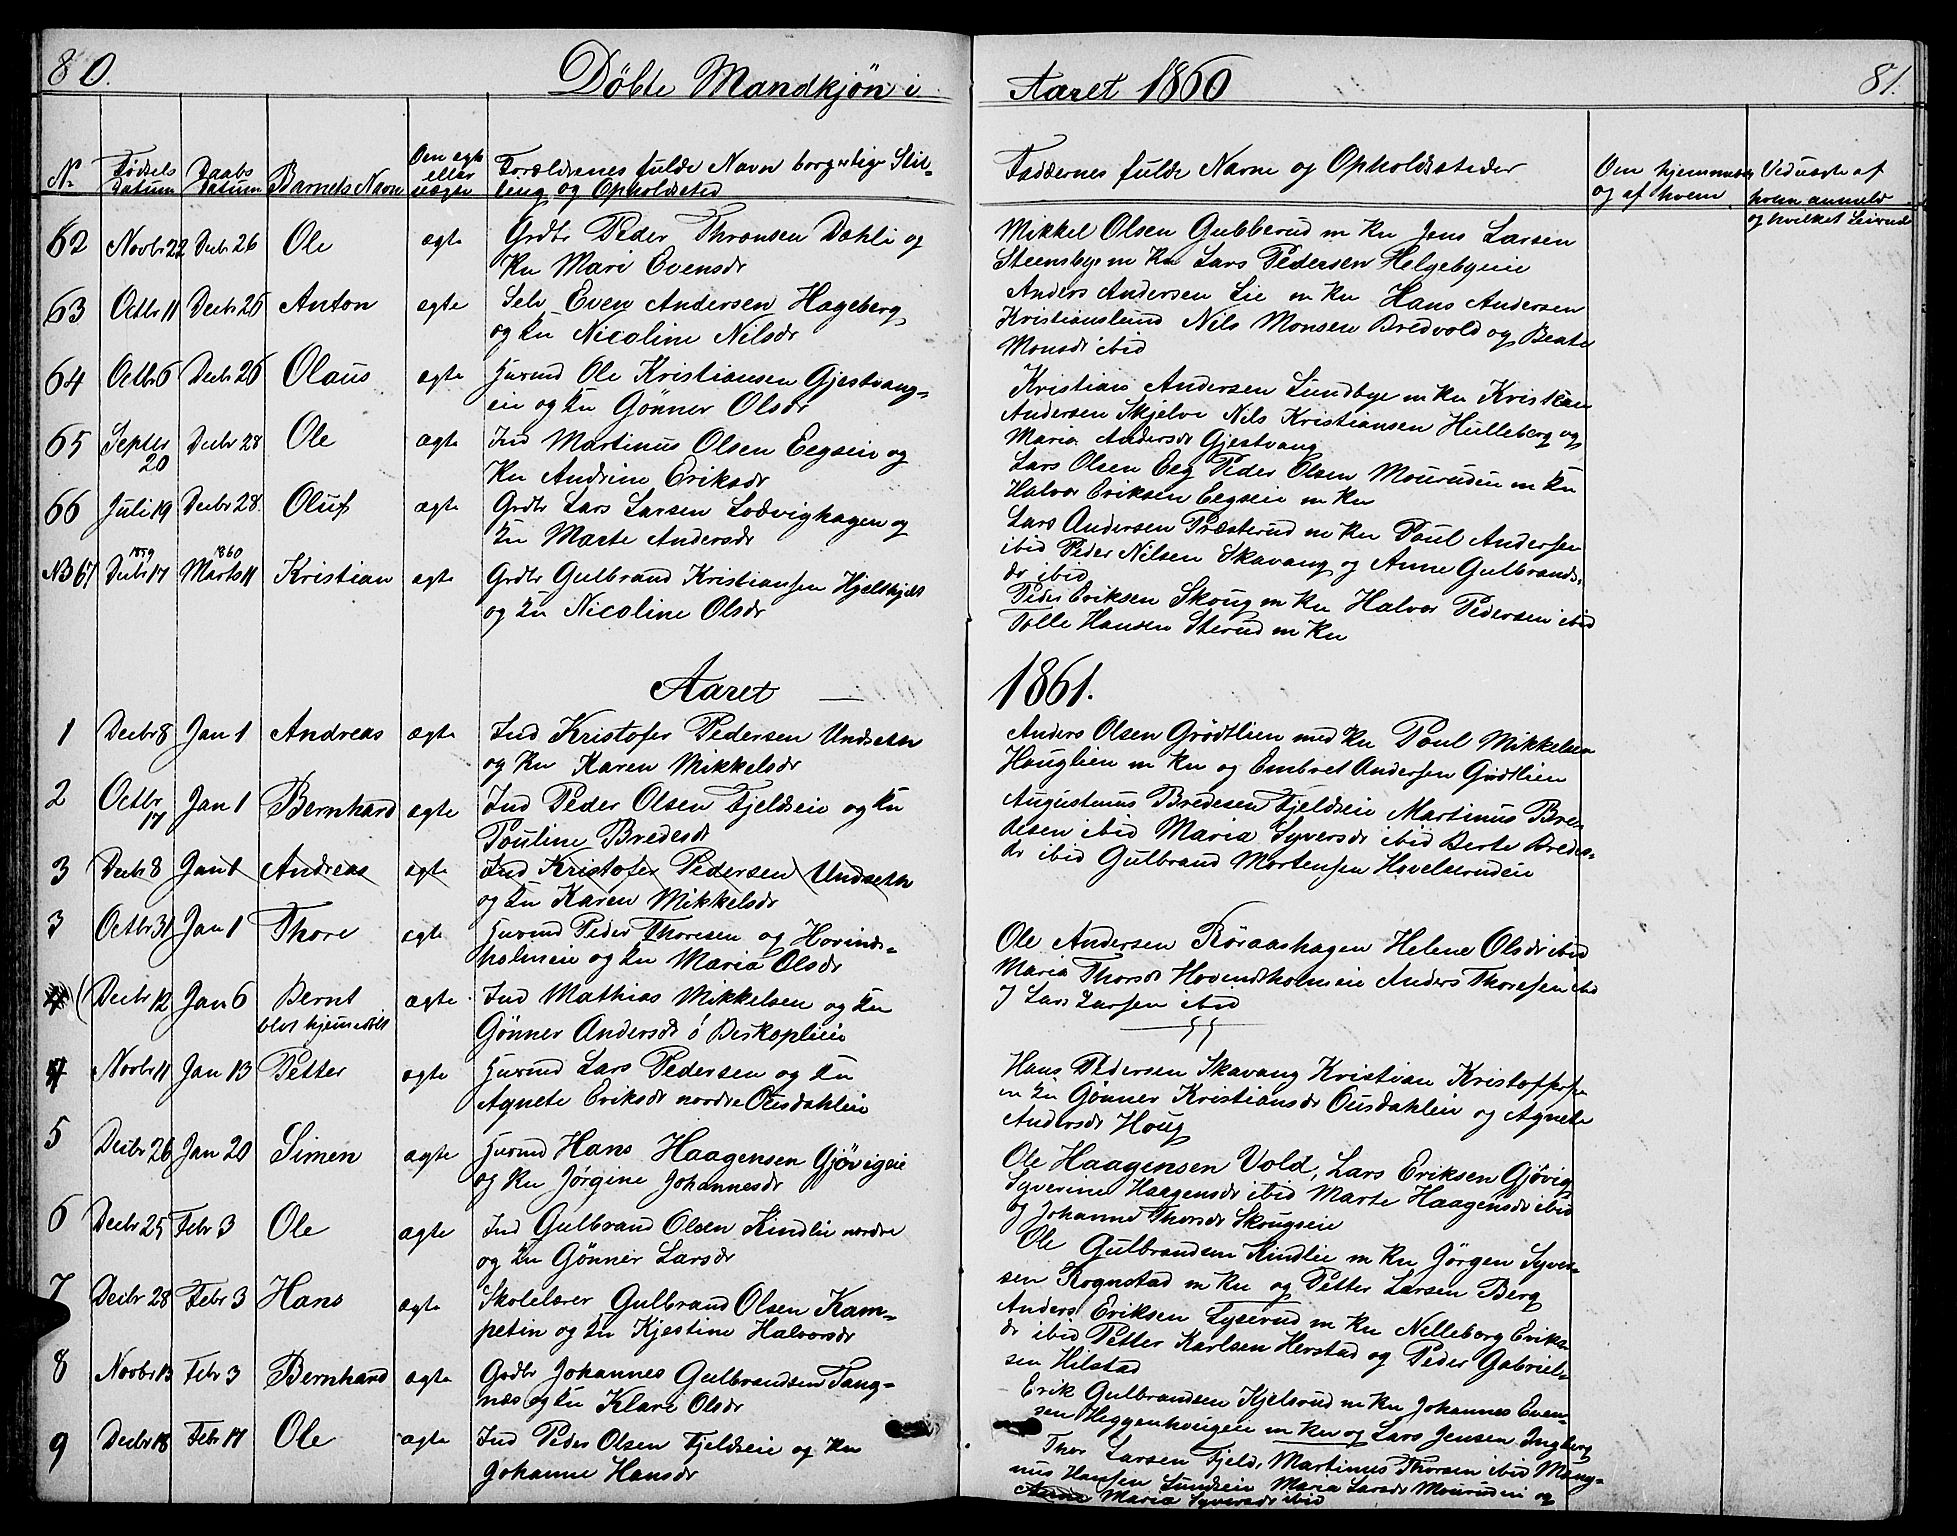 80.
Döbte Mandkjön i
Aaret 1860
81.
No
Födsels Datum
Daabs Datum
Barnets Navn
Om ægte eller uægte
Forældrenes fulde Navn borgerlige Stilling og Opholdssted
Faddernes fulde Navne og Opholdssteder
Om hjemmedøbt og af hvem
62 Novbr 22 Decbr 26 Ole ægte Grdbr Peder Thronsen Dahli og
Ku Mari Evensdr
Mikkel Olsen Gubberud m Ku Jens Larsen
Steensbye m Ku Lars Pedersen Helgebyeie
63 Octbr 11 Decbr 26 Anton ægte Selv Even Andersen Hageberg
og Ku Nicoline Nilsdr
Anders Andersen Lie m Ku Hans Andersen
Kristianslund Nils Monsen Bredvold og Beate
Monsdr ibid
64 Octbr 6 Decbr 26 Olaus ægte Husmd Ole Kristiansen Gjestvang-
eie og Ku Gönner Olsdr
Kristian Andersen Sundbye m Ku Kristian
Andersen Skjelve Nils Kristiansen Hulleberg og
Maria Andersdr Gjestvang
65 Septbr 20 Decbr 28 Ole ægte Ind Martinus Olsen Eegseie og
Ku Andrine Eriksdr
Lars Olsen Eeg Peder Olsen Mourudeie m Ku
Halvor Eriksen Eegseie m Ku
66 Juli 19 Decbr 28 Oluf ægte Grdbr Lars Larsen Lodvighagen og
Ku Marte Andersdr
Lars Andersen Præsterud m Ku Poul Andersen
ibid Peder Nilsen Skavang og Anne Gulbrands-
dr ibid
NB 67 1859 Decbr 17 1860 Marts 11 Kristian ægte Grdbr Gulbrand Kristiansen Hjelskjelt
og Ku Nicoline Olsdr
Peder Eriksen Skoug m Ku Halvor Pedersen ibid
Tolle Hansen Sterud m Ku
Aaret 1861.
1 Decbr 8 Jan 1 Andreas ægte Ind Kristofer Pedersen Undseth
og Ku Karen Mikkelsdr
Anders Olsen Grödtlien med Ku Poul Mikkelsen
Houglien m Ku og Embret Andersen Grödtlien
2 Octbr 17 Jan 1 Bernhard ægte Ind Peder Olsen Fjeldseie og Ku
Pouline Bredesdr
Augustinus Bredesen Fjeldseie Martinus Bre-
desen ibid Maria Syversdr ibid Berte Bredes-
dr ibid Gulbrand Mortensen Hovelsrudeie
3 Decbr 8 Jan 1 Andreas ægte Ind Kristofer Pedersen Undseth
og Ku Karen Mikkelsdr
3 Octbr 31 Jan 1 Thore ægte Husmd Peder Thoresen og Hovinds-
holmeie og Ku Maria Olsdr
Ole Andersen Röraashagen Helene Olsdr ibid
Maria Thorsdr Hovendsholmeie Anders Thoresen ibid
og Lars Larsen ibid
4 Decbr 12 Jan 6 Bernt ægte Ind Mathias Mikkelsen og Ku
blot hjemmedöbt
Gönner Andersdr ó Biskoplieie
4 Novbr 11 Jan 13 Petter ægte Husmd Lars Pedersen og Ku
Agnete Eriksdr nordre Ousdahleie
Hans Pedersen Skavang Kristian Kristoffersen
m Ku Gönner Kristiansdr Ousdahleie og Agnete
Andersdr Houg
5 Decbr 26 Jan 20 Simen ægte Husmd Hans Haagensen Gjövigeie
og Ku Jörgine Johannesdr
Ole Haagensen Vold, Lars Eriksen Gjövig
Syverine Haagensdr ibid Marte Haagensdr ibid
og Johanne Thorsdr Skougseie
6 Decbr 25 Febr 3 Ole ægte Ind Gulbrand Olsen Kindlie nordre
og Ku Gönner Larsdr
Ole Gulbrandsen Kindlie m Ku Jörgen Syver-
sen Rognstad m Ku og Petter Larsen Berg
7 Decbr 28 Febr 3 Hans ægte Skolelærer Gulbrand Olsen Kam-
petin og Ku Kjestine Halvorsdr
Anders Eriksen Lyserud m Ku Nelleborg Eriks-
dr ibid Petter Karlsen Herstad og Peder Gabriel-
sen Hilstad
8 Novbr 13 Febr 3 Bernhard ægte Grdbr Johannes Gulbrandsen Tang-
næs og Ku Klare Olsdr
Erik Gulbrandsen Kjelsrud m Ku Johannes Even-
sen Heggenhougeie m Ku og Lars Jensen Ingberg
9 Decbr 18 Febr 17 Ole ægte Ind Peder Olsen Fjeldseie og Ku
Johanne Hansdr
Thor Larsen Fjeld, Martinus Thorsen ibid Mang-
nus Hansen Sundseie Maria Larsdr Mourudeie og
Maria Syversdr ibid